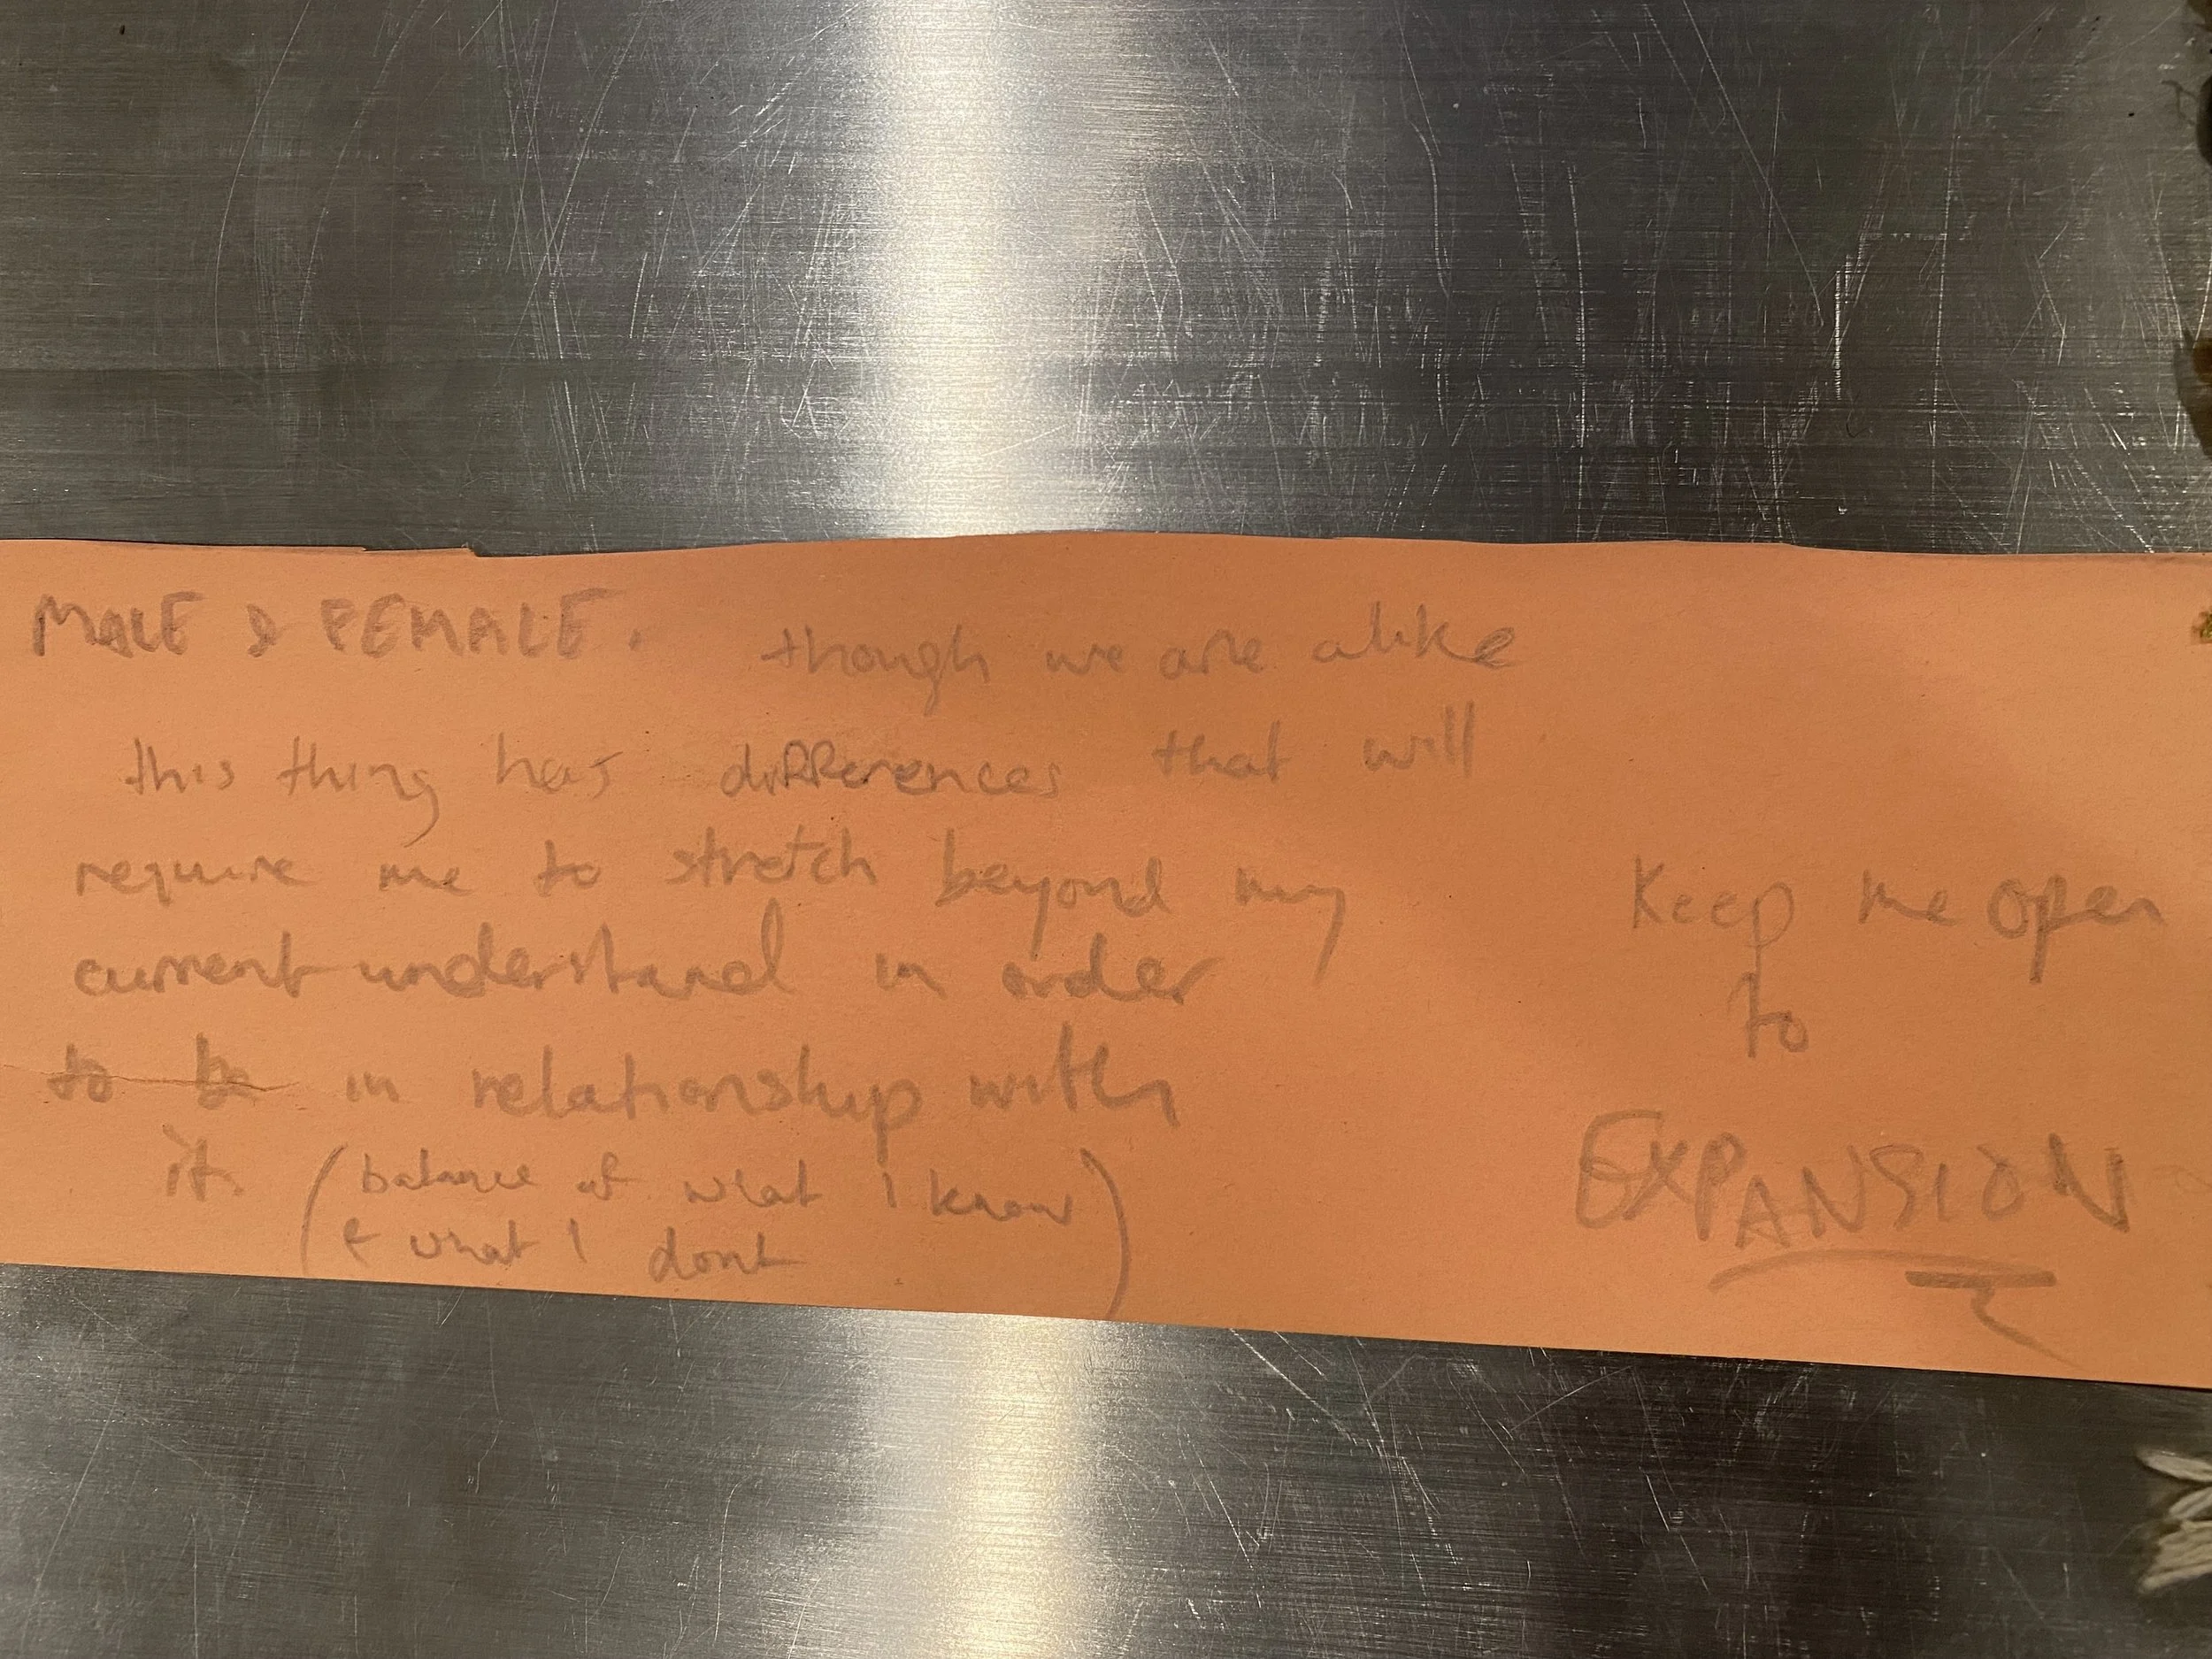 MALE & FEMALE. though we are alike
this thing has differences that will
require me to stretch beyond my
current understand in order
to be in relationship with
it. (balance of what I know
& what I dont)
Keep me open
to
EXPANSION